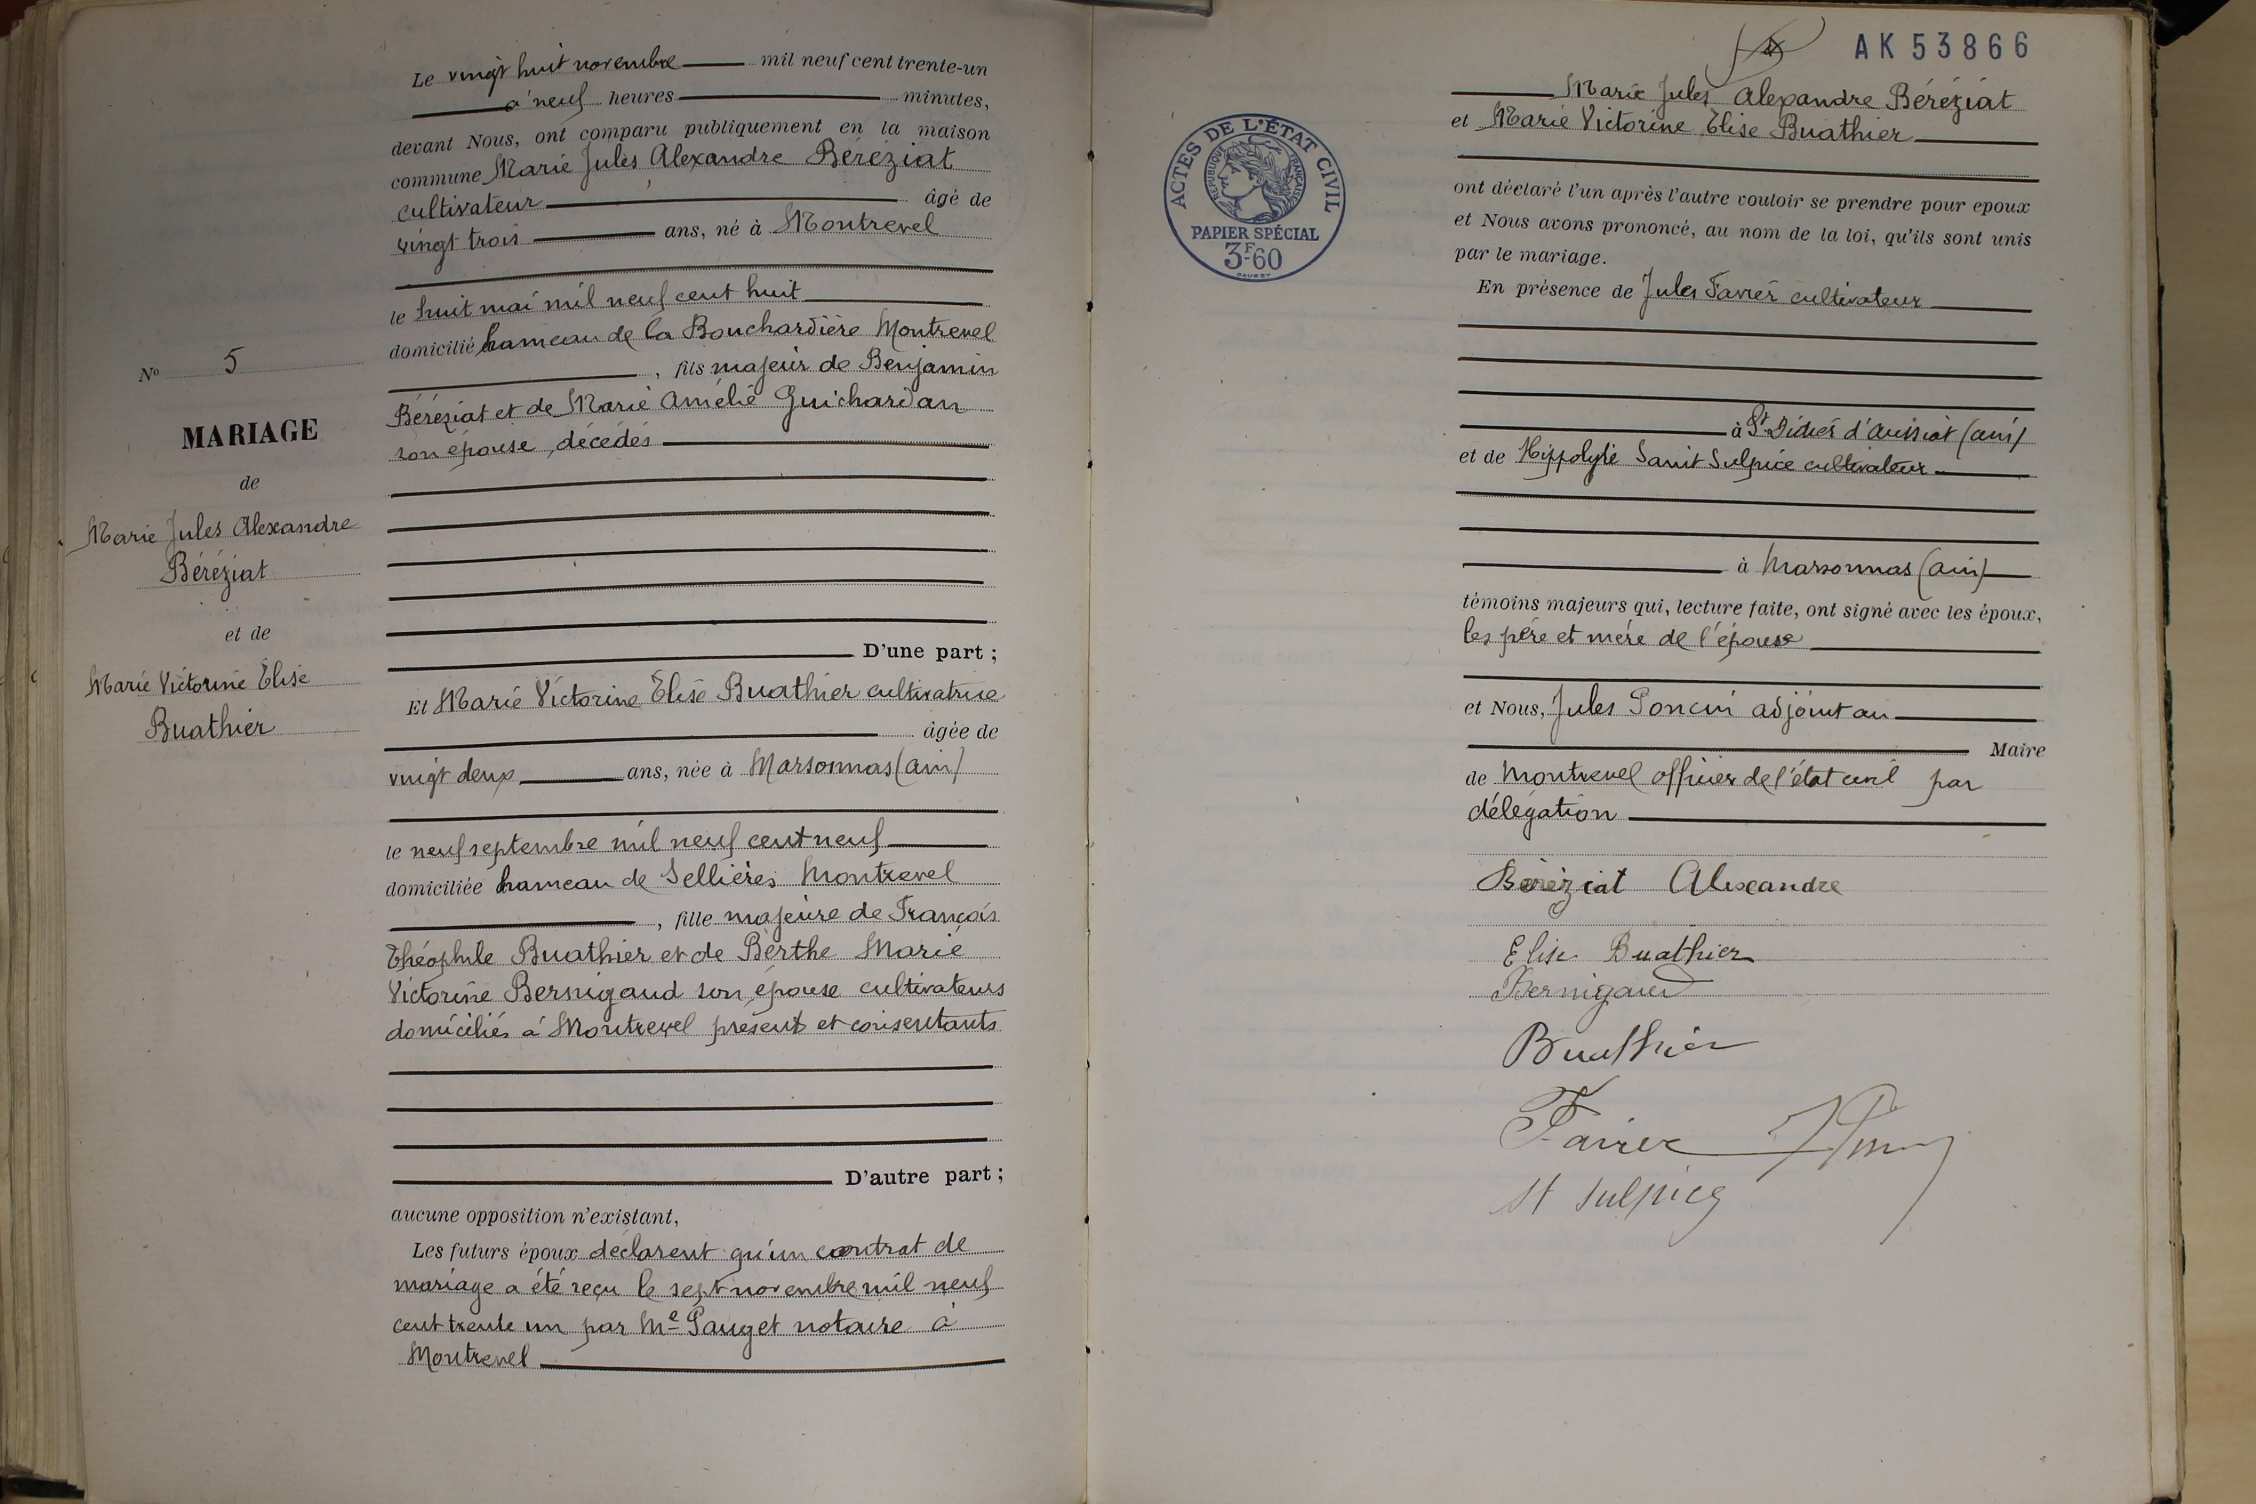 Le vingt huit novembre mil neuf cent trente-un
à neuf heures minutes,
devant Nous, ont comparu publiquement en la maison
commune Marie Jules Alexandre Béréziat
cultivateur âgé de
vingt trois ans, né à Montrevel
le huit mai mil neuf cent huit
domicilié hameau de la Bouchardière Montrevel
, fils majeur de Benjamin
Béréziat et de Marie Amélie Guichardan
son épouse, décédés
D'une part ;
Et Marie Victorine Elise Buathier cultivatrice
âgée de
vingt deux ans, née à Marsonnas (ain)
le neuf septembre mil neuf cent neuf
domiciliée hameau de Sellières Montrevel
, fille majeure de François
Théophile Buathier et de Berthe Marie
Victorine Bernigaud son épouse cultivateurs
domiciliés à Montrevel présents et consentants
D'autre part ;
aucune opposition n'existant,
Les futurs époux déclarent qu'un contrat de
mariage a été reçu le sept novembre mil neuf
cent trente un par Me Pauget notaire à
Montrevel
No 5
MARIAGE
de
Marie Jules Alexandre
Béréziat
et de
Marie Victorine Elise
Buathier
AK 53866
ACTES DE L'ÉTAT CIVIL
RÉPUBLIQUE FRANÇAISE
PAPIER SPÉCIAL
3F60
Marie Jules Alexandre Béréziat
et Marie Victorine Elise Buathier
ont déclaré l'un après l'autre vouloir se prendre pour epoux
et Nous avons prononcé, au nom de la loi, qu'ils sont unis
par le mariage.
En présence de Jules Favier cultivateur
à St Didier d'Aussiat (ain)
et de Hippolyte Saint Sulpice cultivateur
à Marsonnas (ain)
témoins majeurs qui, lecture faite, ont signé avec les époux,
les père et mère de l'épouse
et Nous, Jules Poncin adjoint au
Maire
de Montrevel officier de l'état civil par
délégation
Béréziat Alexandre
Elise Buathier
Bernigaud
Buathier
Favier
St Sulpice